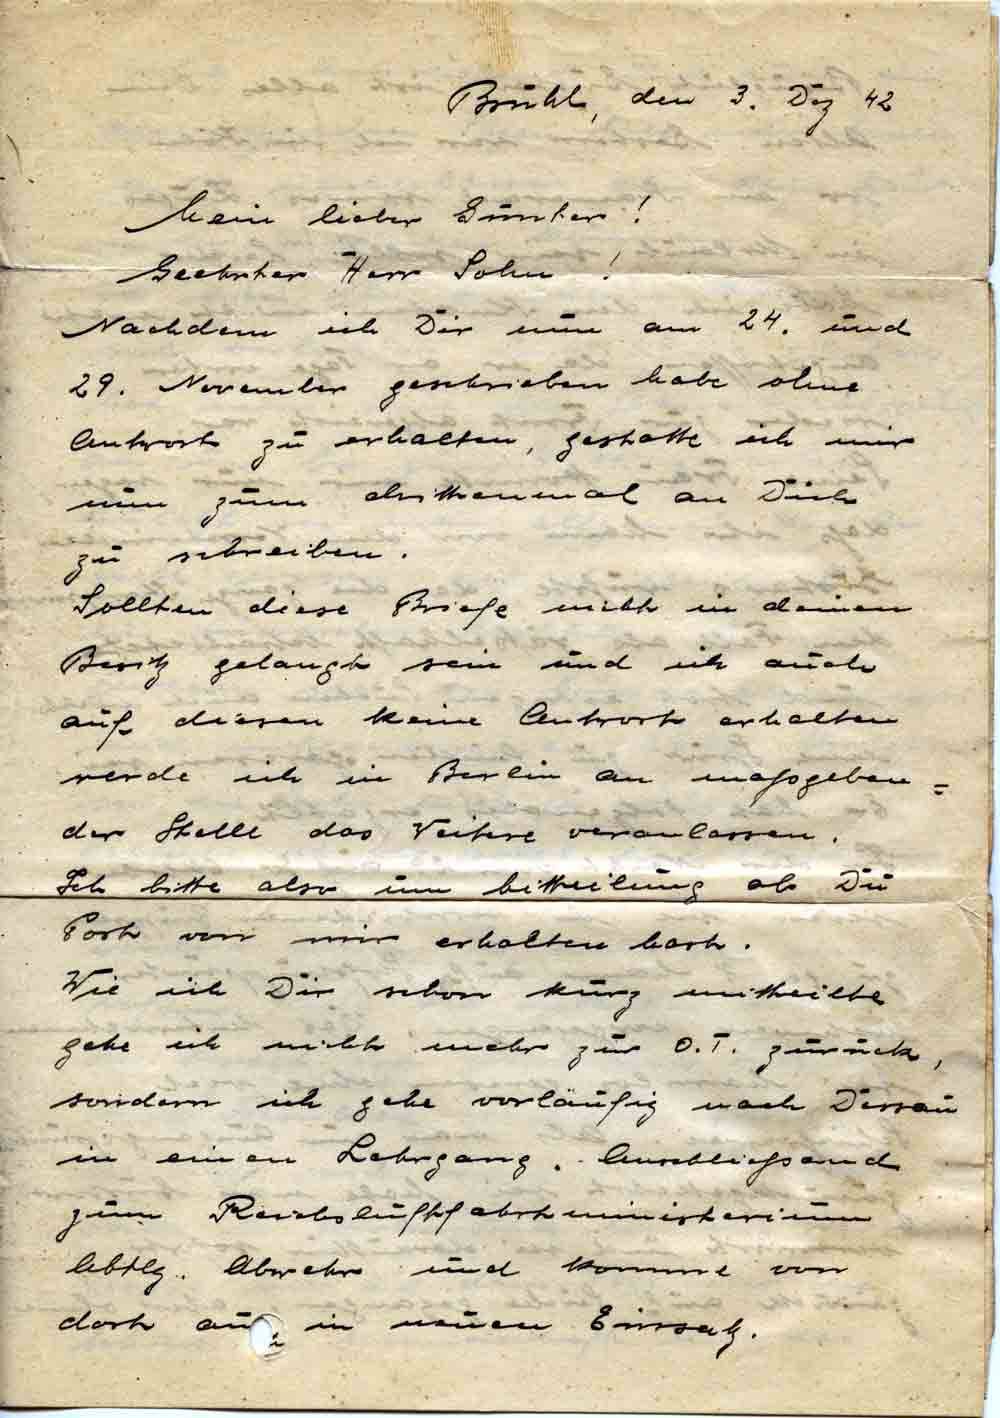 Brühl, den 3. Dez 42
Mein lieber Günter!
Geehrter Herr Sohn!
Nachdem ich Dir nun am 24. und
29. November geschrieben habe ohne
Antwort zu erhalten, gestatte ich mir
nun zum drittenmal an Dich
zu schreiben.
Sollten diese Briefe nicht in deinen
Besitz gelangt sein und ich auch
auf diesen keine Antwort erhalten
werde ich in Berlin an massgeben=
der Stelle das Weitere veranlassen.
Ich bitte also um Mitteilung ob Du
Post von mir erhalten hast.
Wie ich Dir schon kurz mitteilte
gehe ich nicht mehr zur O.T. zurück,
sondern ich gehe vorläufig nach Dessau
in einen Lehrgang. Anschliessend
zum Reichsluftfahrtministerium
Abtlg. Abwehr und komme von
dort aus in neuen Einsatz.